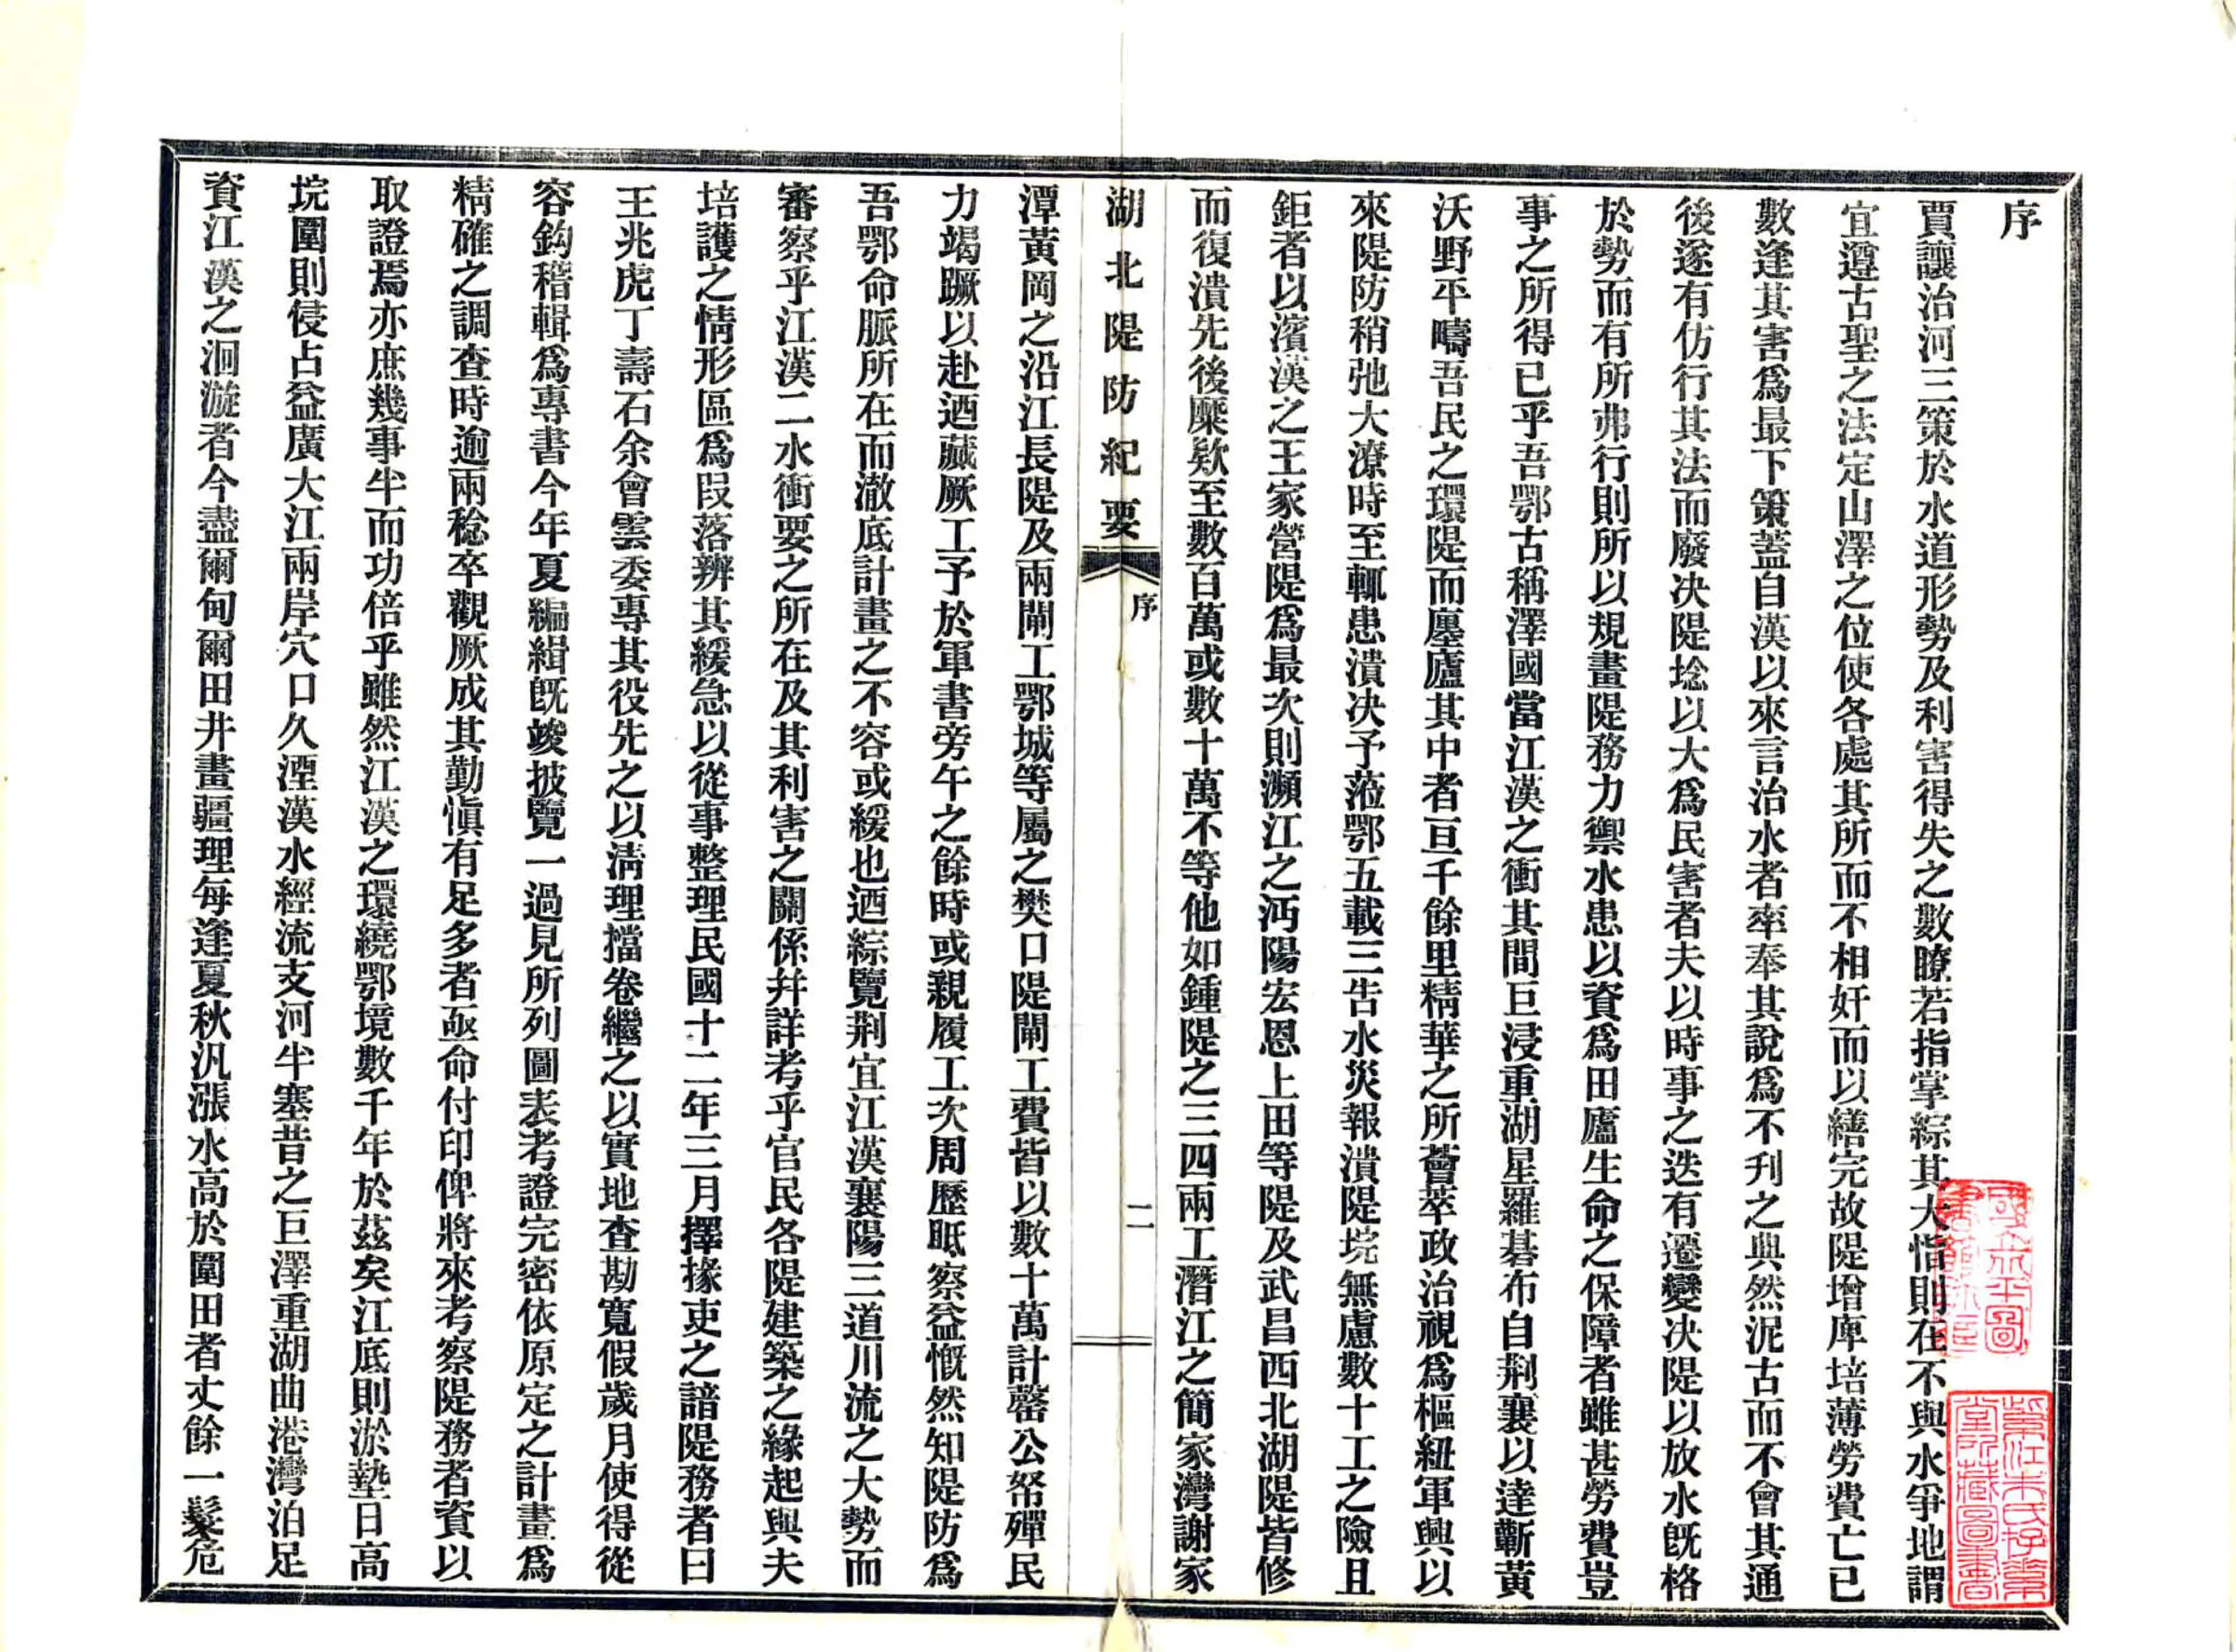 序
賈讓治河三策於水道形勢及利害得失之數瞭若指掌綜其大恉則在不與水爭地謂
宜遵古聖之法定山澤之位使各處其所而不相奸而以繕完故隄增庳培薄勞費亡已
數逢其害爲最下策蓋自漢以來言治水者率奉其說爲不刋之典然泥古而不會其通
後遂有仿行其法而廢决隄埝以大爲民害者夫以時事之迭有遷變决隄以放水旣格
於勢而有所弗行則所以規畫隄務力禦水患以資爲田廬生命之保障者雖甚勞費豈
事之所得已乎吾鄂古稱澤國當江漢之衝其間巨浸重湖星羅碁布自荆襄以達蘄黃
沃野平疇吾民之環隄而廛廬其中者亘千餘里精華之所薈萃政治視爲樞紐軍興以
來隄防稍弛大潦時至輒患潰决予蒞鄂五載三告水災報潰隄垸無慮數十工之險且
鉅者以濱漢之王家營隄爲最次則瀕江之沔陽宏恩上田等隄及武昌西北湖隄皆修
而復潰先後糜欵至數百萬或數十萬不等他如鍾隄之三四兩工潛江之簡家灣謝家
湖北隄防紀要
序
二
潭黃岡之沿江長隄及兩閘工鄂城等屬之樊口隄閘工費皆以數十萬計罄公帑殫民
力竭蹶以赴迺藏厥工予於軍書旁午之餘時或親履工次周歷眡察益慨然知隄防爲
吾鄂命脈所在而澈底計畫之不容或緩也迺綜覽荆宜江漢襄陽三道川流之大勢而
審察乎江漢二水衝要之所在及其利害之關係幷詳考乎官民各隄建築之緣起與夫
培護之情形區爲段落辨其緩急以從事整理民國十二年三月擇掾吏之諳隄務者曰
王兆虎丁壽石余會雲委專其役先之以淸理檔卷繼之以實地查勘寬假歲月使得從
容鈎稽輯爲專書今年夏編緝旣竣披覽一過見所列圖表考證完密依原定之計畫爲
精確之調查時逾兩稔卒觀厥成其勤愼有足多者亟命付印俾將來考察隄務者資以
取證焉亦庶幾事半而功倍乎雖然江漢之環繞鄂境數千年於茲矣江底則淤墊日高
垸圍則侵占益廣大江兩岸穴口久湮漢水經流支河半塞昔之巨澤重湖曲港灣泊足
資江漢之洄漩者今盡爾甸爾田井畫疆理每逢夏秋汎漲水高於圍田者丈餘一髮危